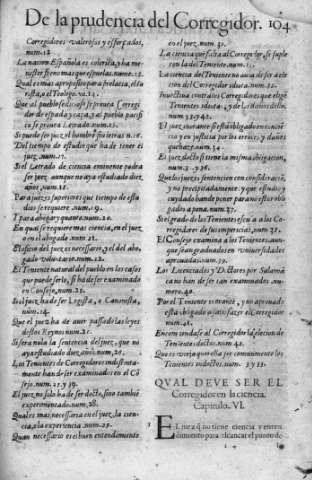 De la prudencia del Corregidor. 104
Corregidores valerosos y esforçados,
num.12
La nacion Española es colerica, y ha me-
nester freno mas que espuelas. nume.13.
Qual es mas aproposito para prelacia, el Iu-
rista, o el Teologo. nu.14.
Que al pueblo se ha de Corregi-
dor de espada y capa, y al pueblo pacifi-
co se Letrado. num.15.
Si puede ser juez el hombre sin letras. n.16.
Del tiempo de estudio que ha de tener el
juez. num.17.
Si el Letrado de ciencia eminente podra
ser juez aunque no aya estudiado diez
años. num.18.
Para juezes superiores que tiempo de estu
dios se requiere. num.19.
Y para abogar quanto. num.20.
En qual se requiere mas ciencia, en el juez,
o en el abogado. num.21.
El oficio del juez es necessario, y el del abo-
gado voluntario. num.22.
El Teniente natural del pueblo en los casos
que puede serlo, si ha de ser examinado
en Consejo. num.23.
Si el juez ha de ser Legista, o Canonista,
num.24.
Que el juez ha de auer passado las leyes
destos Reynos. num.25.
Si sera nula la sentencia del juez, que no
aya estudiado diez años. num.26.
Los Tenientes de Corregidores indistinta-
mente han de ser examinados en el Co-
sejo. num.27. y 39.
El juez no solo ha de ser docto, sino tambié
experimentado. num.28.
Qual es mas necessaria en el juez, la cien-
cia, o la experiencia. num.29.
Quan necessario es el buen entendimiento
en el juez. num.30.
La ciencia que falta al Corregidor, si se suple
con la del Teniente. num.31.
La ciencia del Teniente no ha de ser
cion del Corregidor idiota. num.32.
Inuectiua contra los Corregidores que elige
Tenientes idiotas, y de los daños dello.
num.33. y 42.
El juez ignorante si està obligado en concié
cia y en justicia por los errores, y daños
que haze. num.34.
El juez docto si tiene la misma obligacion,
num.35. y 36.
Que los juezes sentencien con consideració,
y no precipitadamente: y que estudio y
cuydado han de poner para no estar obliga
dos a pena. num.37.
Si el grado de los Tenientes escusa a los Co-
rregidores de su impericia. num.38.
El Consejo examina a los Tenientes, aun-
que sean graduados en vniuersidades
aprouadas. num.39.
Los Licenciados y Dotores por Salamã
ca no han de ser tan examinados. nu-
mero.40.
Por el Teniente examinado, y no aprouado
està obligado a satisfazer el Corregidor.
num.41.
Encomiendase al Corregidor la elecion de
Tenientes doctos. num.42.
Que es vieja quexa ser comunmente los
Tenientes indoctos. num. 33.
QVAL DEVE SER EL
Corregidor en la ciencia.
Capitulo. VI.
El juez q̃ no tiene ciencia y enten
dimiento para alcançar el punto de